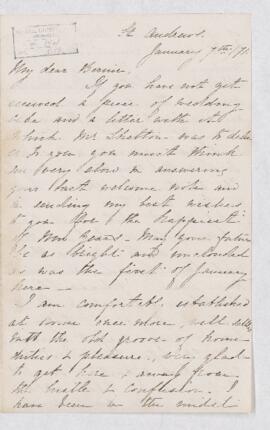 St Andrews.
January 7th /71
My dear Bernie.
If you have not yet
received a piece of wedding
cake and a letter with it
which Mr Skelton was to deliver
to you you must think
me very slow in answering
your most welcome note and
in sending my best wishes
to you for the happiest
of New Years - May your future
be as bright and unclouded
as was the first of January
here -
I am comfortably established
at home once more, well
into the old groove of home
duties & pleasures, very glad
to get here & away from
the bustle & confusion. I
have been in the midst